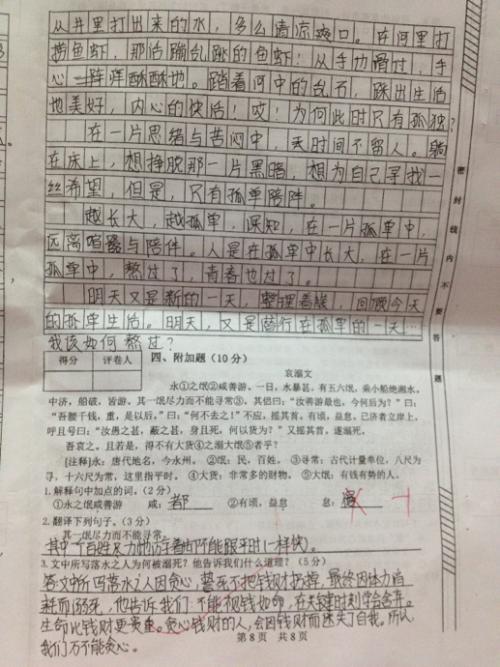 从井里打出来的水，多么清凉爽口。在河里打
捞鱼虾，那活蹦乱跳的鱼虾！从手边滑过，手
心一阵痒酥酥地。踏着河中的乱石，踩出生活
地美好，内心的快活！哎！为何此时只有孤独？
在一片思绪与苦闷中，丢时间不留人。躺
在床上，想挣脱那一片黑暗，想为自己寻找一
丝希望，但是，只有孤单陪阵。
越长大，越孤单，深知，在一片孤单中，
远离喧嚣与陪伴。人是在孤单中长大，在一片
孤单中，熬过了，青春也过了。
明天又是新的一天，整理着，回忆今天
的孤单生活。明天，又是前行在孤单的一天…
我该如何熬过？
密封线内不要答题
得分 评卷人
四、附加题（10分）
哀溺文
永①之氓②咸善游。一日，水暴甚，有五六氓，乘小船绝湘水，
中济，船破，皆游。其一氓尽力而不能寻常③，其侣曰：“汝善游最也，今何后为？”曰：
“吾腰千钱，重，是以后。”曰：“何不去之！”不应，摇其首。有顷，益怠。已济者立岸上，
呼且号曰：“汝愚之甚，蔽之甚，身且死，何以货为？”又摇其首，遂溺死。
吾哀之。且若是，得不有大货④之溺大氓⑤者乎？
[注释]永：唐代地名，今永州。 ②氓：民，百姓。 ③寻常：古代计量单位，八尺为
寻，十六尺为常，这里指平时。 ④大货：非常多的财物。 ⑤大氓：有钱有势的人。
1.解释句中加点的词。（2分）
①永之氓咸善游 咸：都 ②有顷，益怠 怠：
2.翻译下列句子。（3分）
其一氓尽力而不能寻常。
其中一个百姓尽力地游着却不能跟平时（一样快）。
3.文中所写落水之人为何被溺死？他告诉我们什么道理？（5分）
答：文中所写落水之人因贪心，誓死不把钱财扔掉，最终因体力消
耗而溺死，他告诉我们：不能视钱如命，在关键时刻学会舍弃。
生命比钱财更贵重。贪心钱财的人，会因钱财而迷失了自我。所以
我们万不能贪心。
第8页 共8页